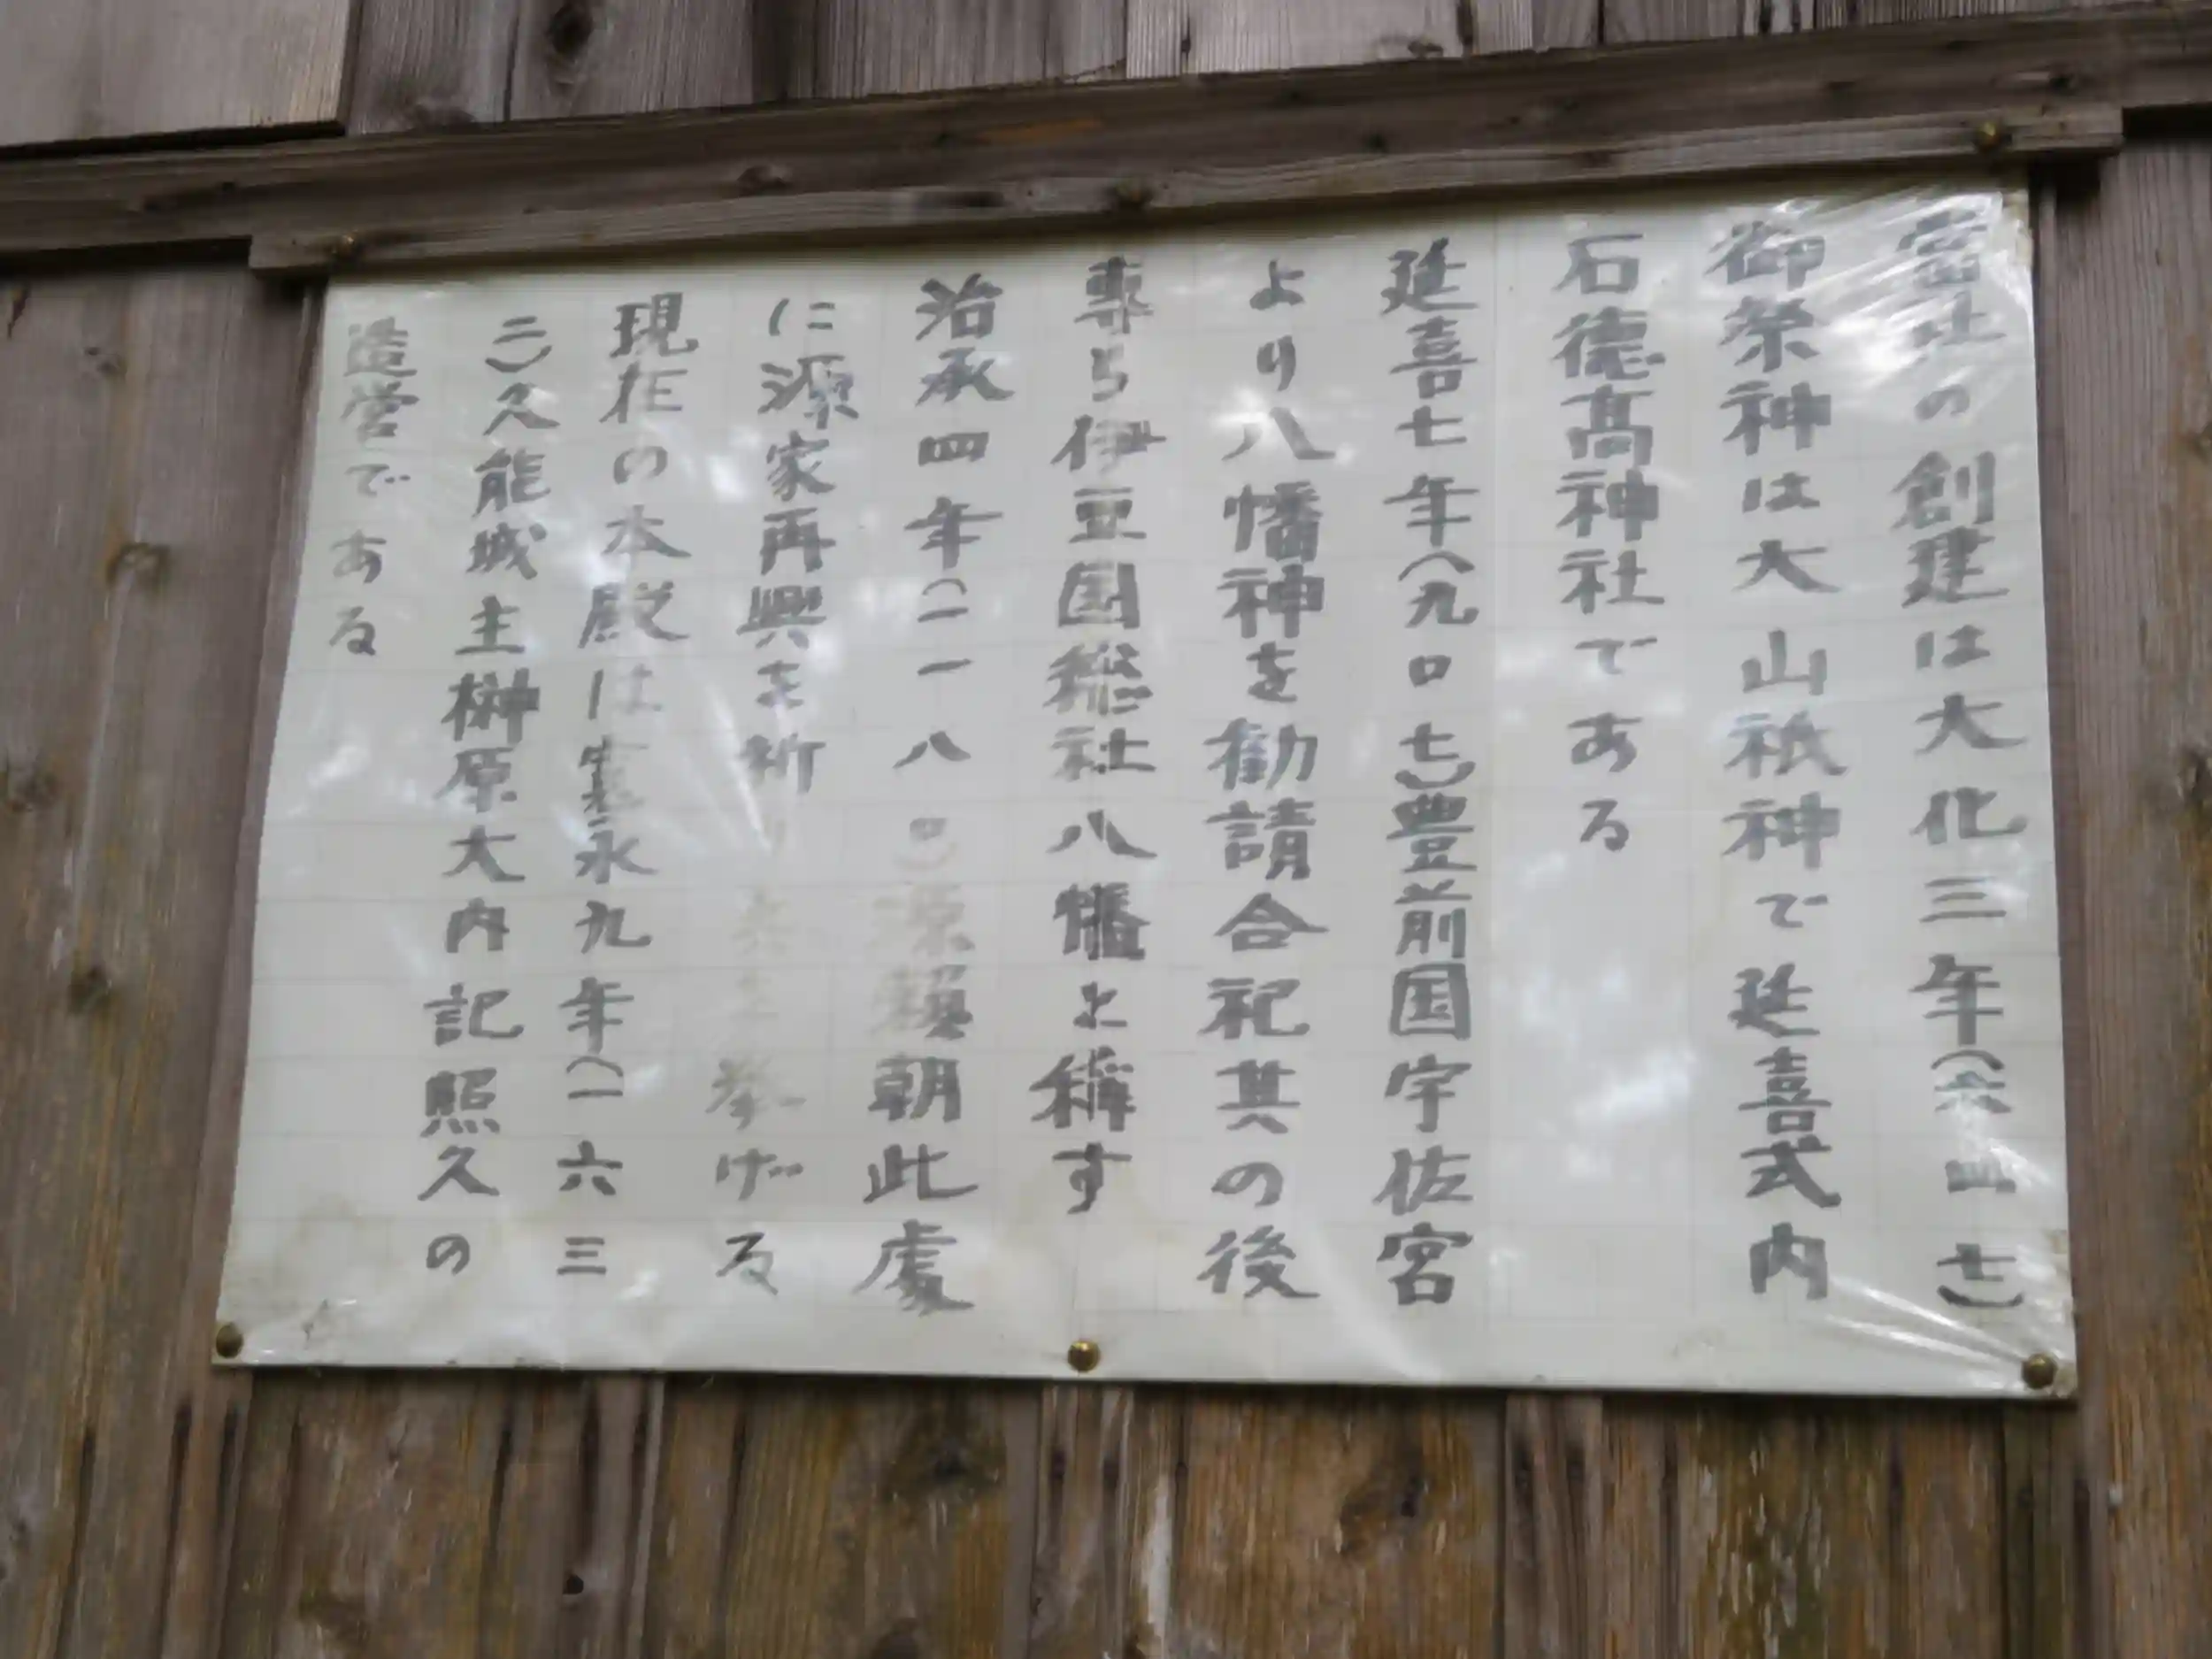 當社の創建は大化三年(六四七)
御祭神は大山祇神で延喜式内
石德髙神社である
延喜七年(九〇七)豊前国宇佐宮
より八幡神を勧請合祀其の後
專ら伊豆国総社八幡と稱す
治承四年(一一八〇)源頼朝此處
に源家再興を祈り兵を挙げる
現在の本殿は寛永九年(一六三
二)久能城主榊原大内記照久の
造営である